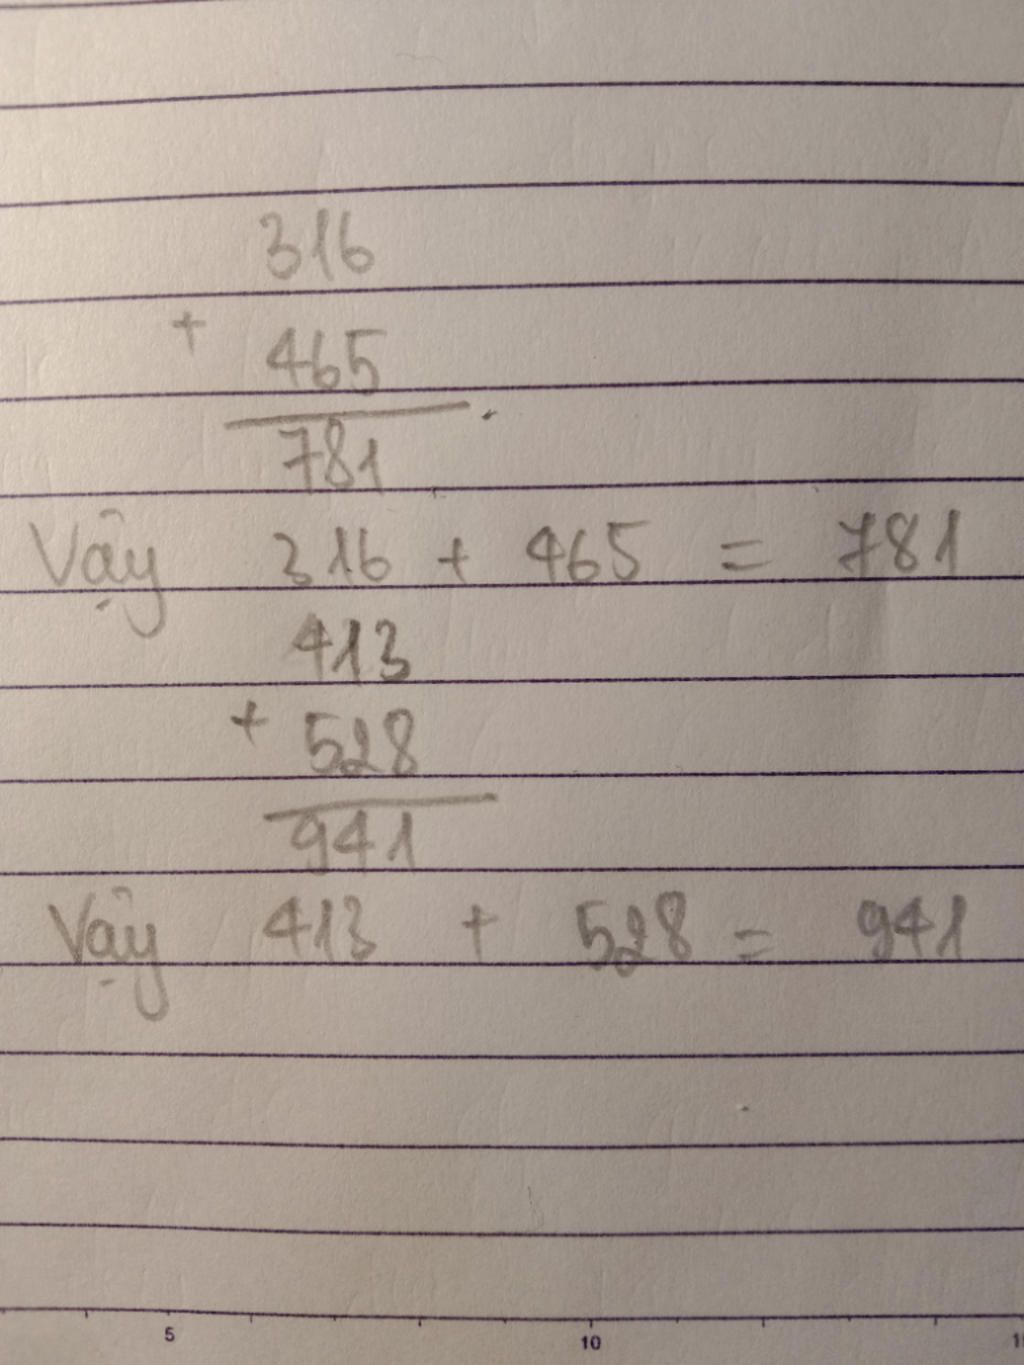 316
+
465
781
Vậy 316 + 465 = 781
413
+ 528
941
Vậy 413 + 528 = 941
5 10